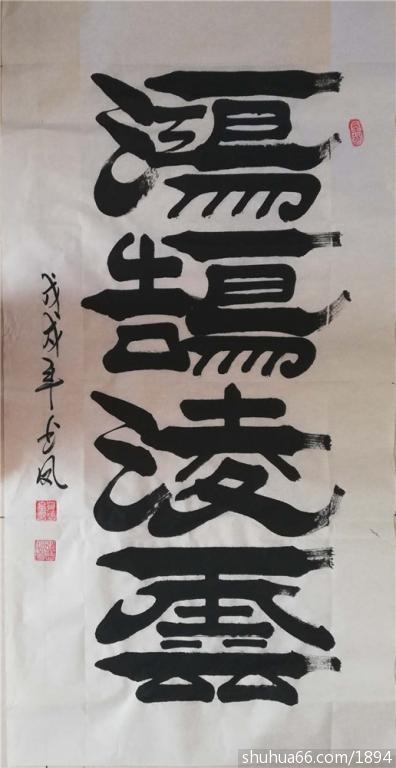 鴻鵠凌雲
戊戌年占凤
shuhua66.com/1894